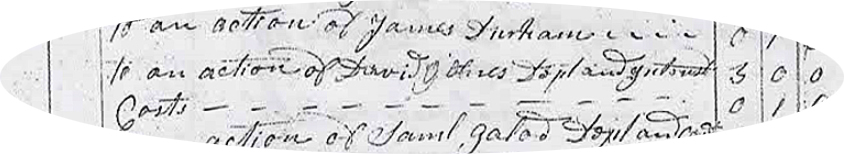 to an action of James Durham
to an action of David Jones Dept and Intrust 3 0 0
Costs 0 1
action of Saml Dept and